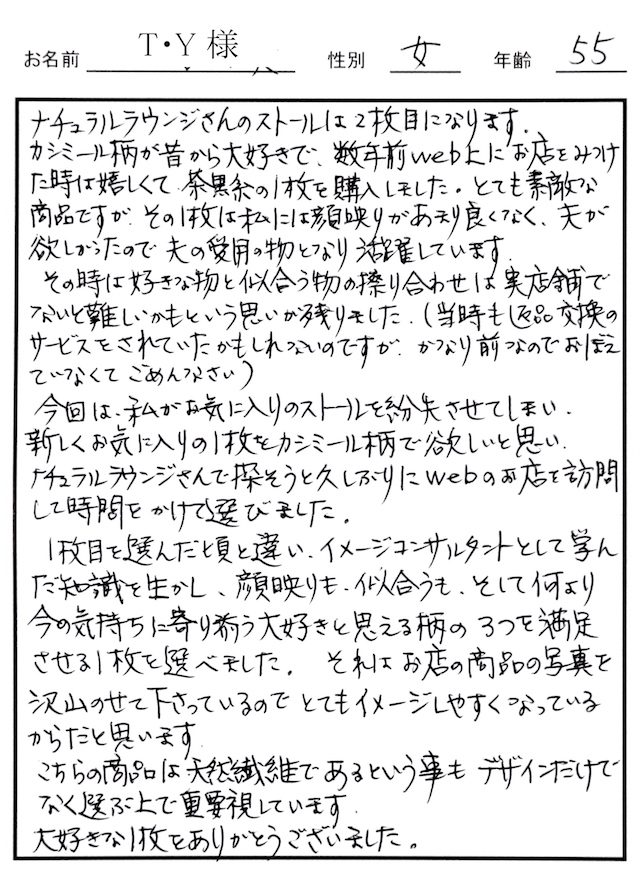 お名前 T・Y 様 性別 女 年齢 55
ナチュラルラウンジさんのストールは2枚目になります.
カシミール柄が昔から大好きで、数年前web上にお店をみつけ
た時は嬉しくて茶黒系の1枚を購入しました。とても素敵な
商品ですが、その1枚は私には顔映りがあまり良くなく、夫が
欲しがったので夫の愛用の物となり活躍しています.
その時は好きな物と似合う物の擦り合わせは実店舗で
ないと難しいかもという思いが残りました.(当時も返品交換の
サービスをされていたかもしれないのですが、かなり前なのでおぼえ
ていなくてごめんなさい)
今回は、私がお気に入りのストールを紛失させてしまい、
新しくお気に入りの1枚をカシミール柄で欲しいと思い、
ナチュラルラウンジさんで探そうと久しぶりにwebのお店を訪問
して時間をかけて選びました。
1枚目を選んだ頃と違い、イメージコンサルタントとして学ん
だ知識を生かし、顔映りも、似合うも、そして何より
今の気持ちに寄り添う大好きと思える柄の3つを満足
させる1枚を選べました。それはお店の商品の写真を
沢山のせて下さっているのでとてもイメージしやすくなっている
からだと思います.
こちらの商品は天然繊維であるという事もデザインだけで
なく選ぶ上で重要視しています.
大好きな1枚をありがとうございました。